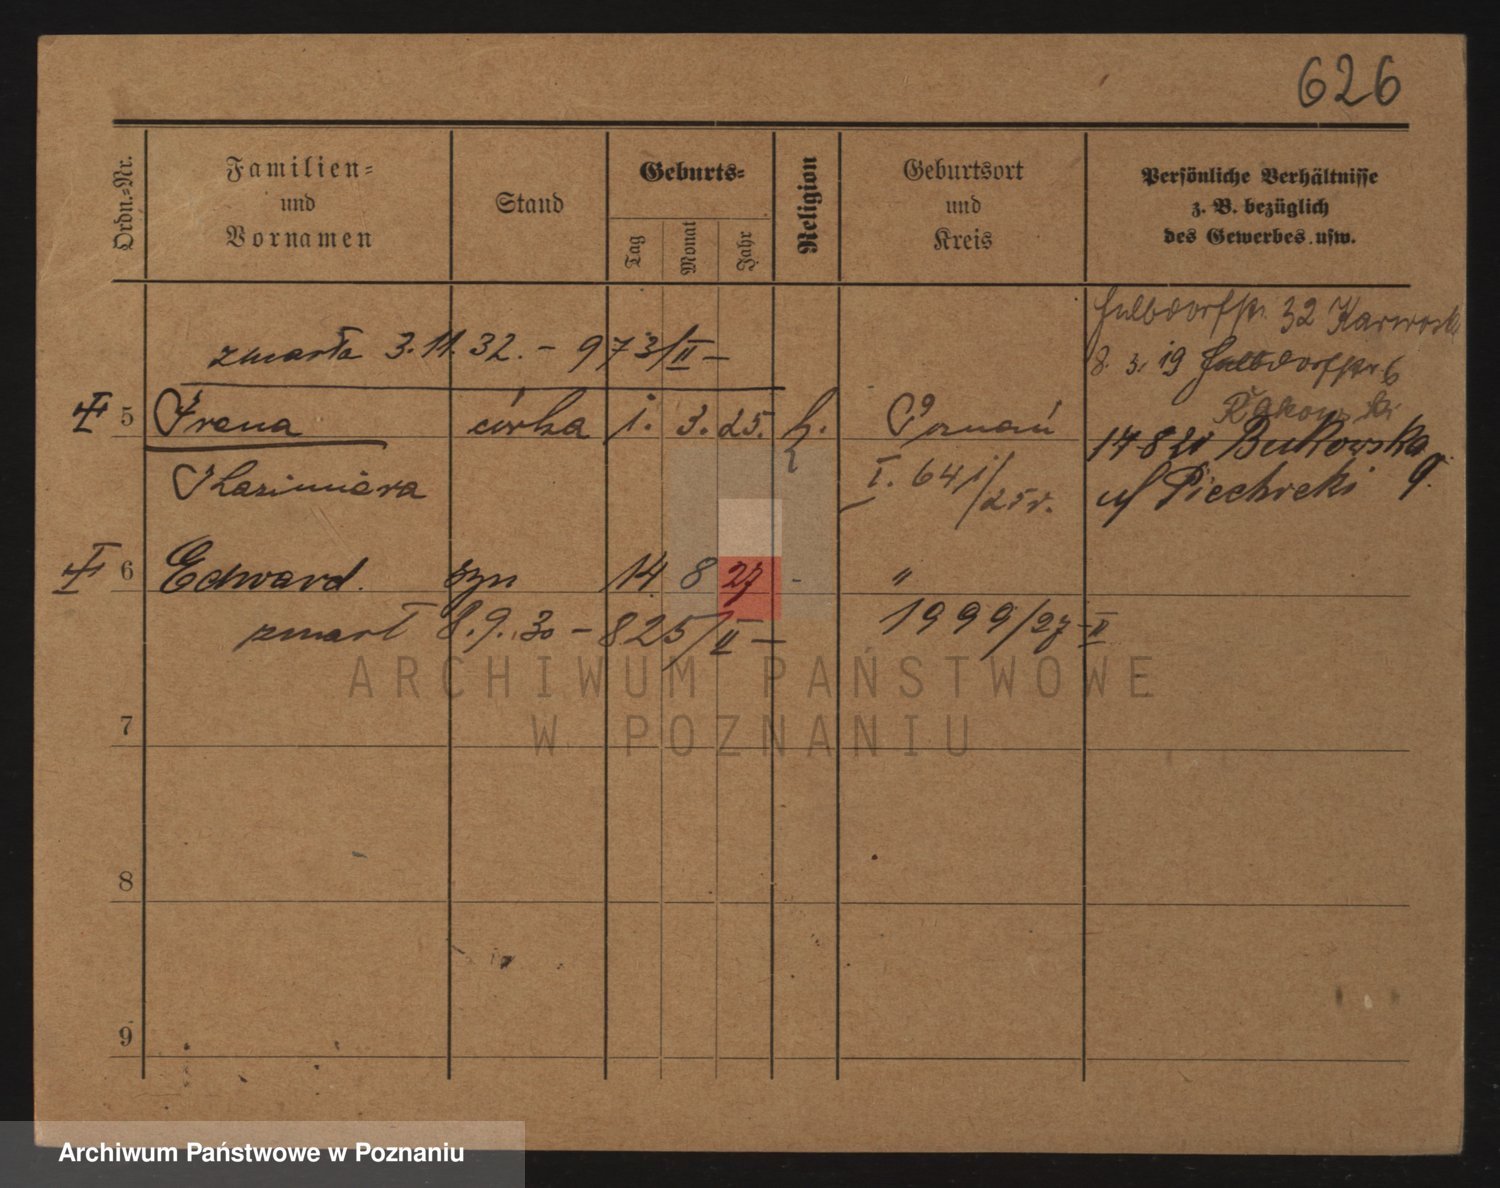 626
Ordn.-Nr.
Familien-
und
Vornamen
Stand
Geburts-
Tag
Monat
Jahr
Religion
Geburtsort
und
Kreis
Persönliche Verhältnisse
z. B. bezüglich
des Gewerbes usw.
32
8. 3. 19
zmarła 3.11.32. - 973/II -
5 Irena córka 1. 3. 25. k. Poznań
Kazimiera I. 641/25r.
17 8 21 Bukowska 9.
Piechocki
6 Edward. syn 14 8 27 - "
zmarł 8.9.30 - 825/II - 1999/27-II
7
8
9
ARCHIWUM PAŃSTWOWE
W POZNANIU
Archiwum Państwowe w Poznaniu